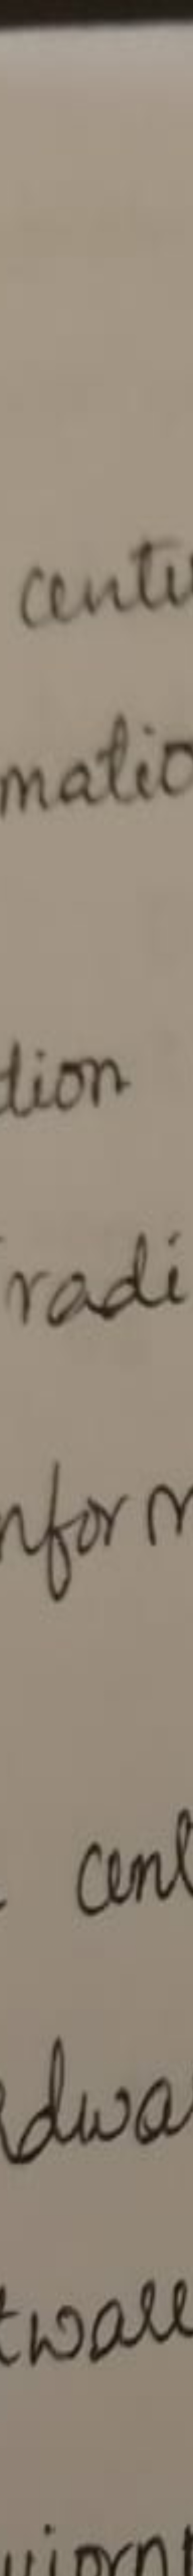 centu
matio
tion
radi
nform
cent
dwar
tware
uipm